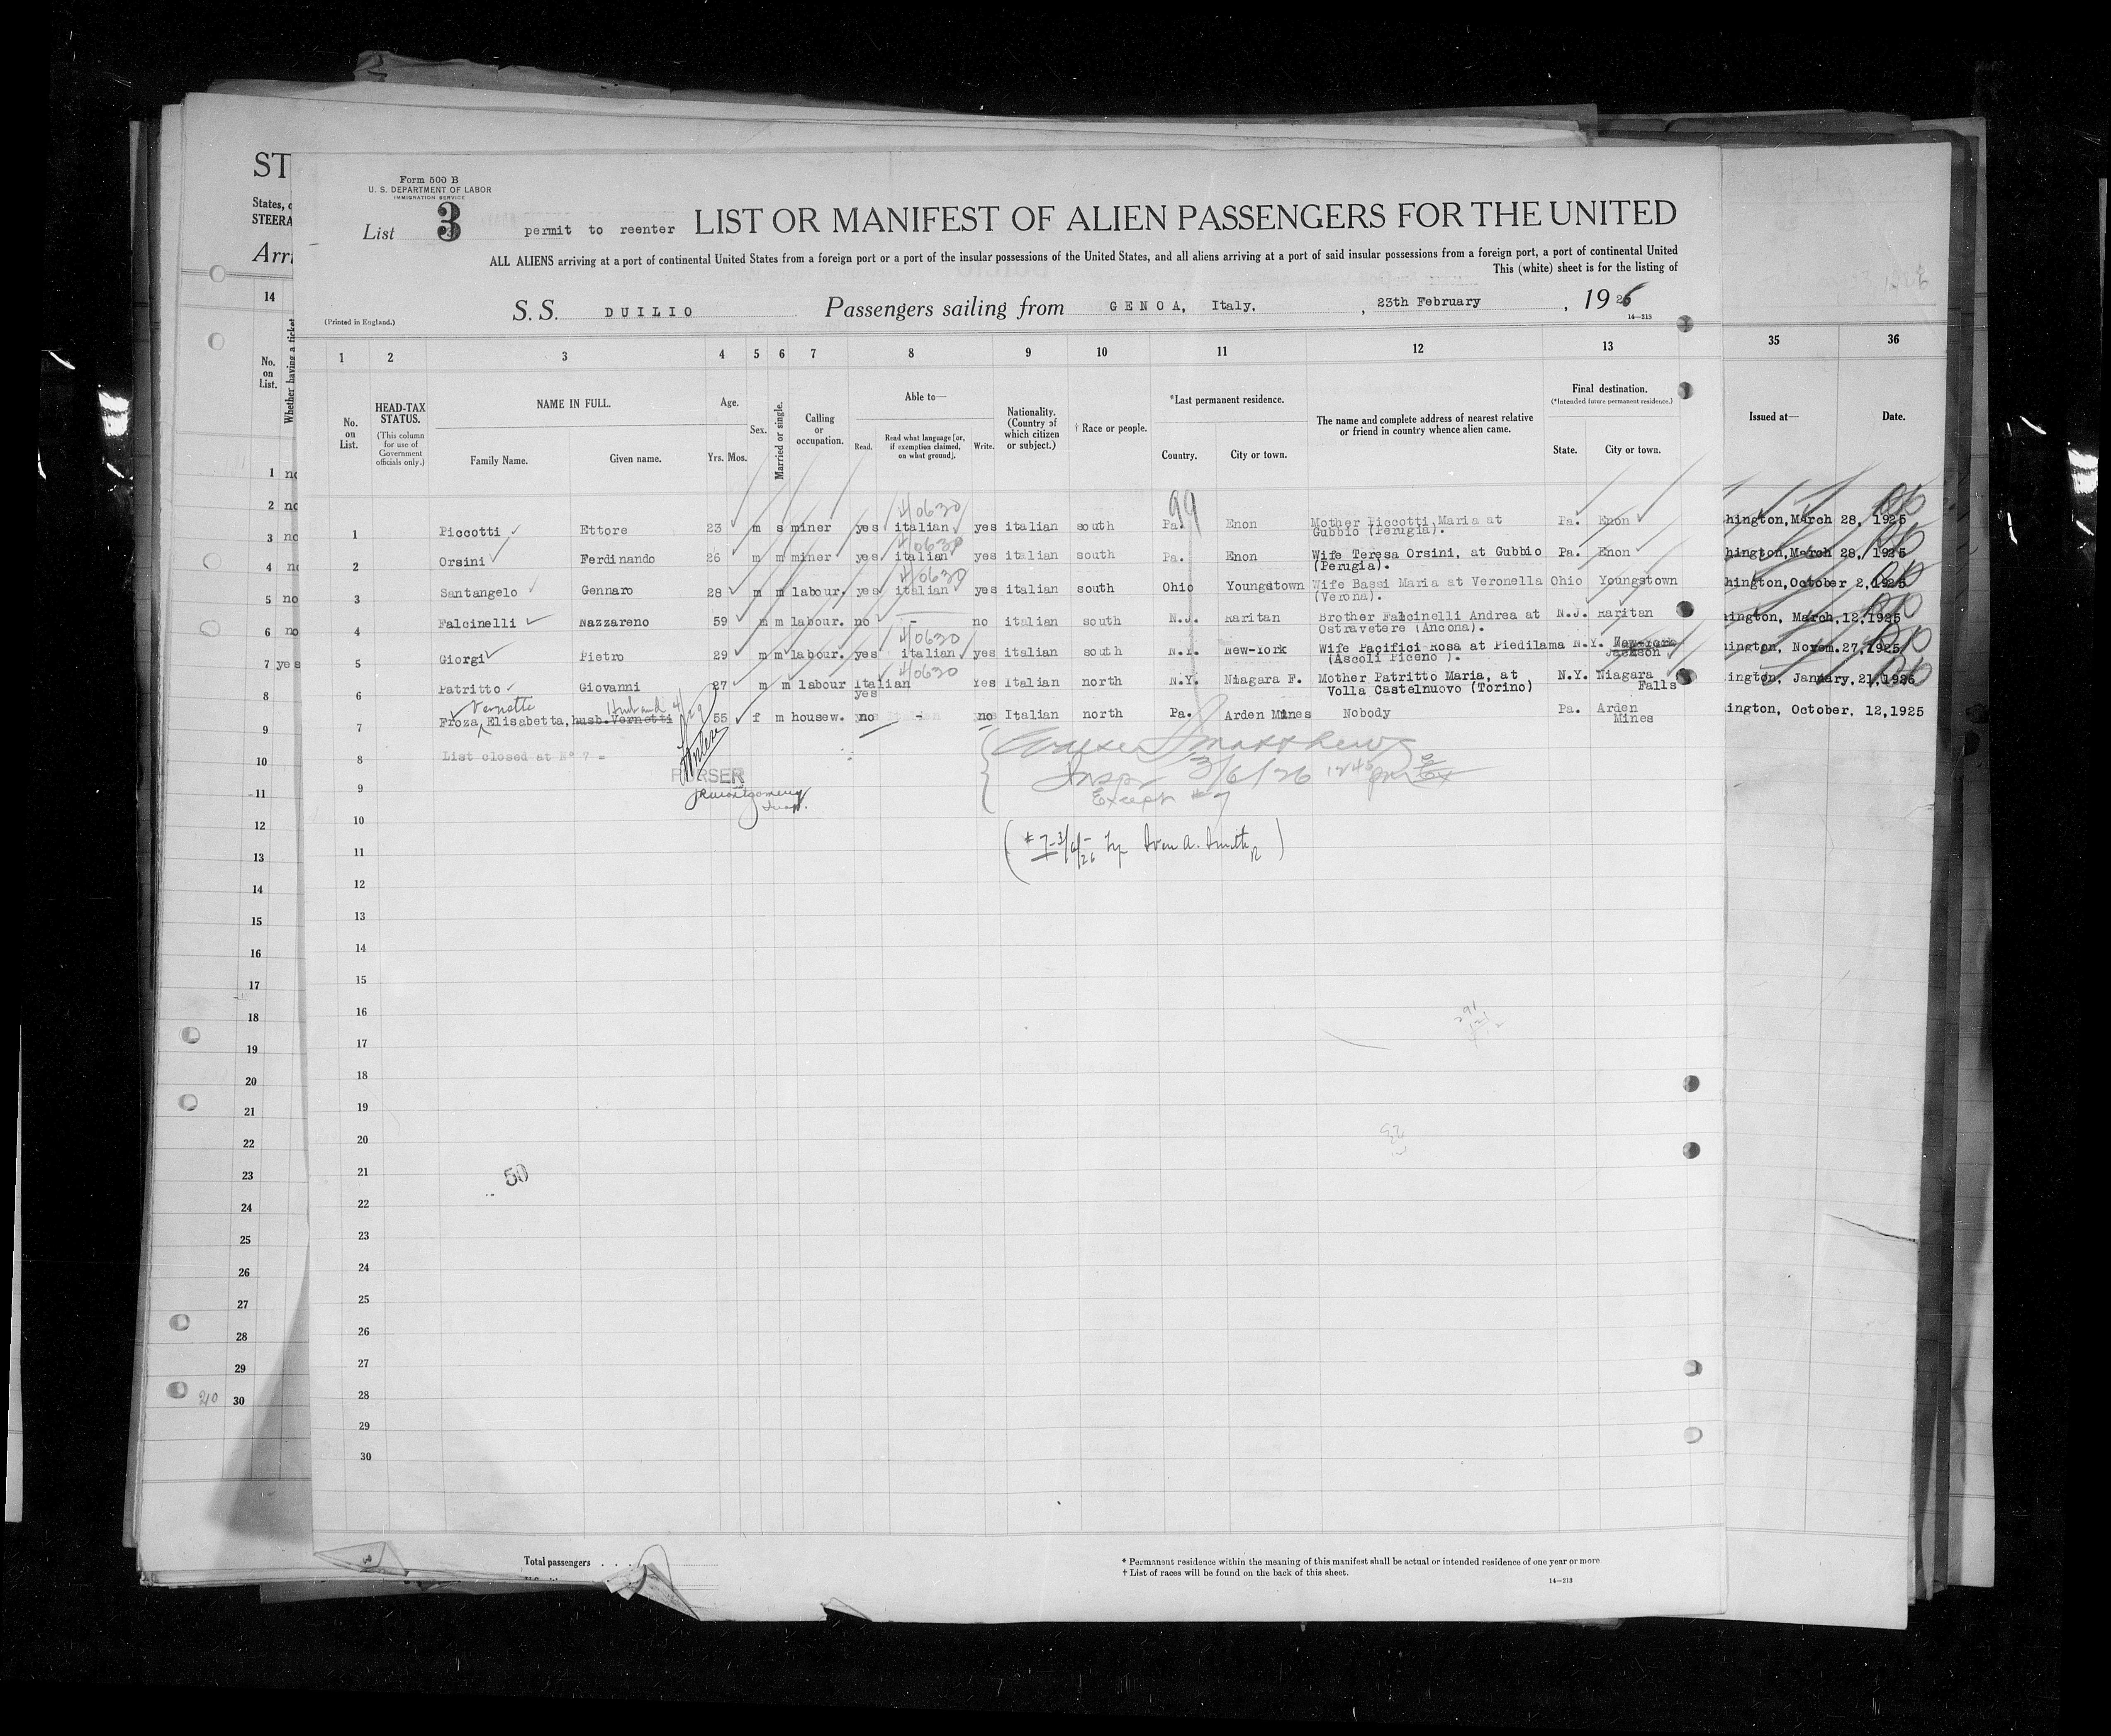 ST
States, o
STEERA
Arri
Form 500 B
U. S. DEPARTMENT OF LABOR
IMMIGRATION SERVICE
List 3 permit to reenter LIST OR MANIFEST OF ALIEN PASSENGERS FOR THE UNITED
ALL ALIENS arriving at a port of continental United States from a foreign port or a port of the insular possessions of the United States, and all aliens arriving at a port of said insular possessions from a foreign port, a port of continental United
This (white) sheet is for the listing of
(Printed in England.) S. S. DUILIO Passengers sailing from GENOA, Italy, , 23th February , 1926
14—213
14 1 2 3 4 5 6 7 8 9 10 11 12 13 35 36
No. on List. Whether having a ticket
No. on List.
HEAD-TAX STATUS.
(This column for use of Government officials only.)
NAME IN FULL.
Family Name. Given name.
Age.
Yrs. Mos.
Sex.
Married or single.
Calling or occupation.
Able to—
Read. Read what language [or, if exemption claimed, on what ground]. Write.
Nationality. (Country of which citizen or subject.)
† Race or people.
*Last permanent residence.
Country. City or town.
The name and complete address of nearest relative or friend in country whence alien came.
Final destination.
(*Intended future permanent residence.)
State. City or town.
Issued at— Date.
99
40630
1 Piccotti Ettore 23 m s miner yes italian yes italian south Pa. Enon Mother Piccotti Maria at Pa. Enon hington, March 28, 1925
Gubbio (Perugia).
40630
2 Orsini Ferdinando 26 m m miner yes italian yes italian south Pa. Enon Wife Teresa Orsini, at Gubbio Pa. Enon hington, March 28, 1925
(Perugia).
40630
3 Santangelo Gennaro 28 m m labour. yes italian yes italian south Ohio Youngstown Wife Bassi Maria at Veronella Ohio Youngstown hington, October 2, 1925
(Verona).
4 Falcinelli Nazzareno 59 m m labour. no - no italian south N.J. Raritan Brother Falcinelli Andrea at N.J. Raritan ington, March, 12, 1925
Ostravetere (Ancona).
40630
5 Giorgi Pietro 29 m m labour. yes italian yes italian south N.Y. New-York Wife Pacifici Rosa at Piedilama N.Y. New-York ington, Novem. 27, 1925
(Ascoli Piceno ). Jackson
40630
6 Patritto Giovanni 27 m m labour Italian Yes Italian north N.Y. Niagara F. Mother Patritto Maria, at N.Y. Niagara ington, January, 21, 1926
yes Volla Castelnuovo (Torino) Falls
Vernetti Husband
7 Froza, Elisabetta, husb. Vernetti 55 f m housew. no - no Italian north Pa. Arden Mines Nobody Pa. Arden ington, October, 12, 1925
Mines
8 List closed at Nº 7 =
PURSER
JR Montgomery
Insp.
Matthews
Insp. 3/6/26 1245 pm
Except #7
(#7-3/6/26 by Iven A. Smith)
9
10
11
12
13
14
15
16
17
18
19
20
21
22
23
24
25
26
27
28
29
30
50
1 no
2 no
3 no
4 no
5 no
6 no
7 yes
8
9
10
11
12
13
14
15
16
17
18
19
20
21
22
23
24
25
26
27
28
29
210 30
Total passengers . . . .
* Permanent residence within the meaning of this manifest shall be actual or intended residence of one year or more
† List of races will be found on the back of this sheet.
14—213